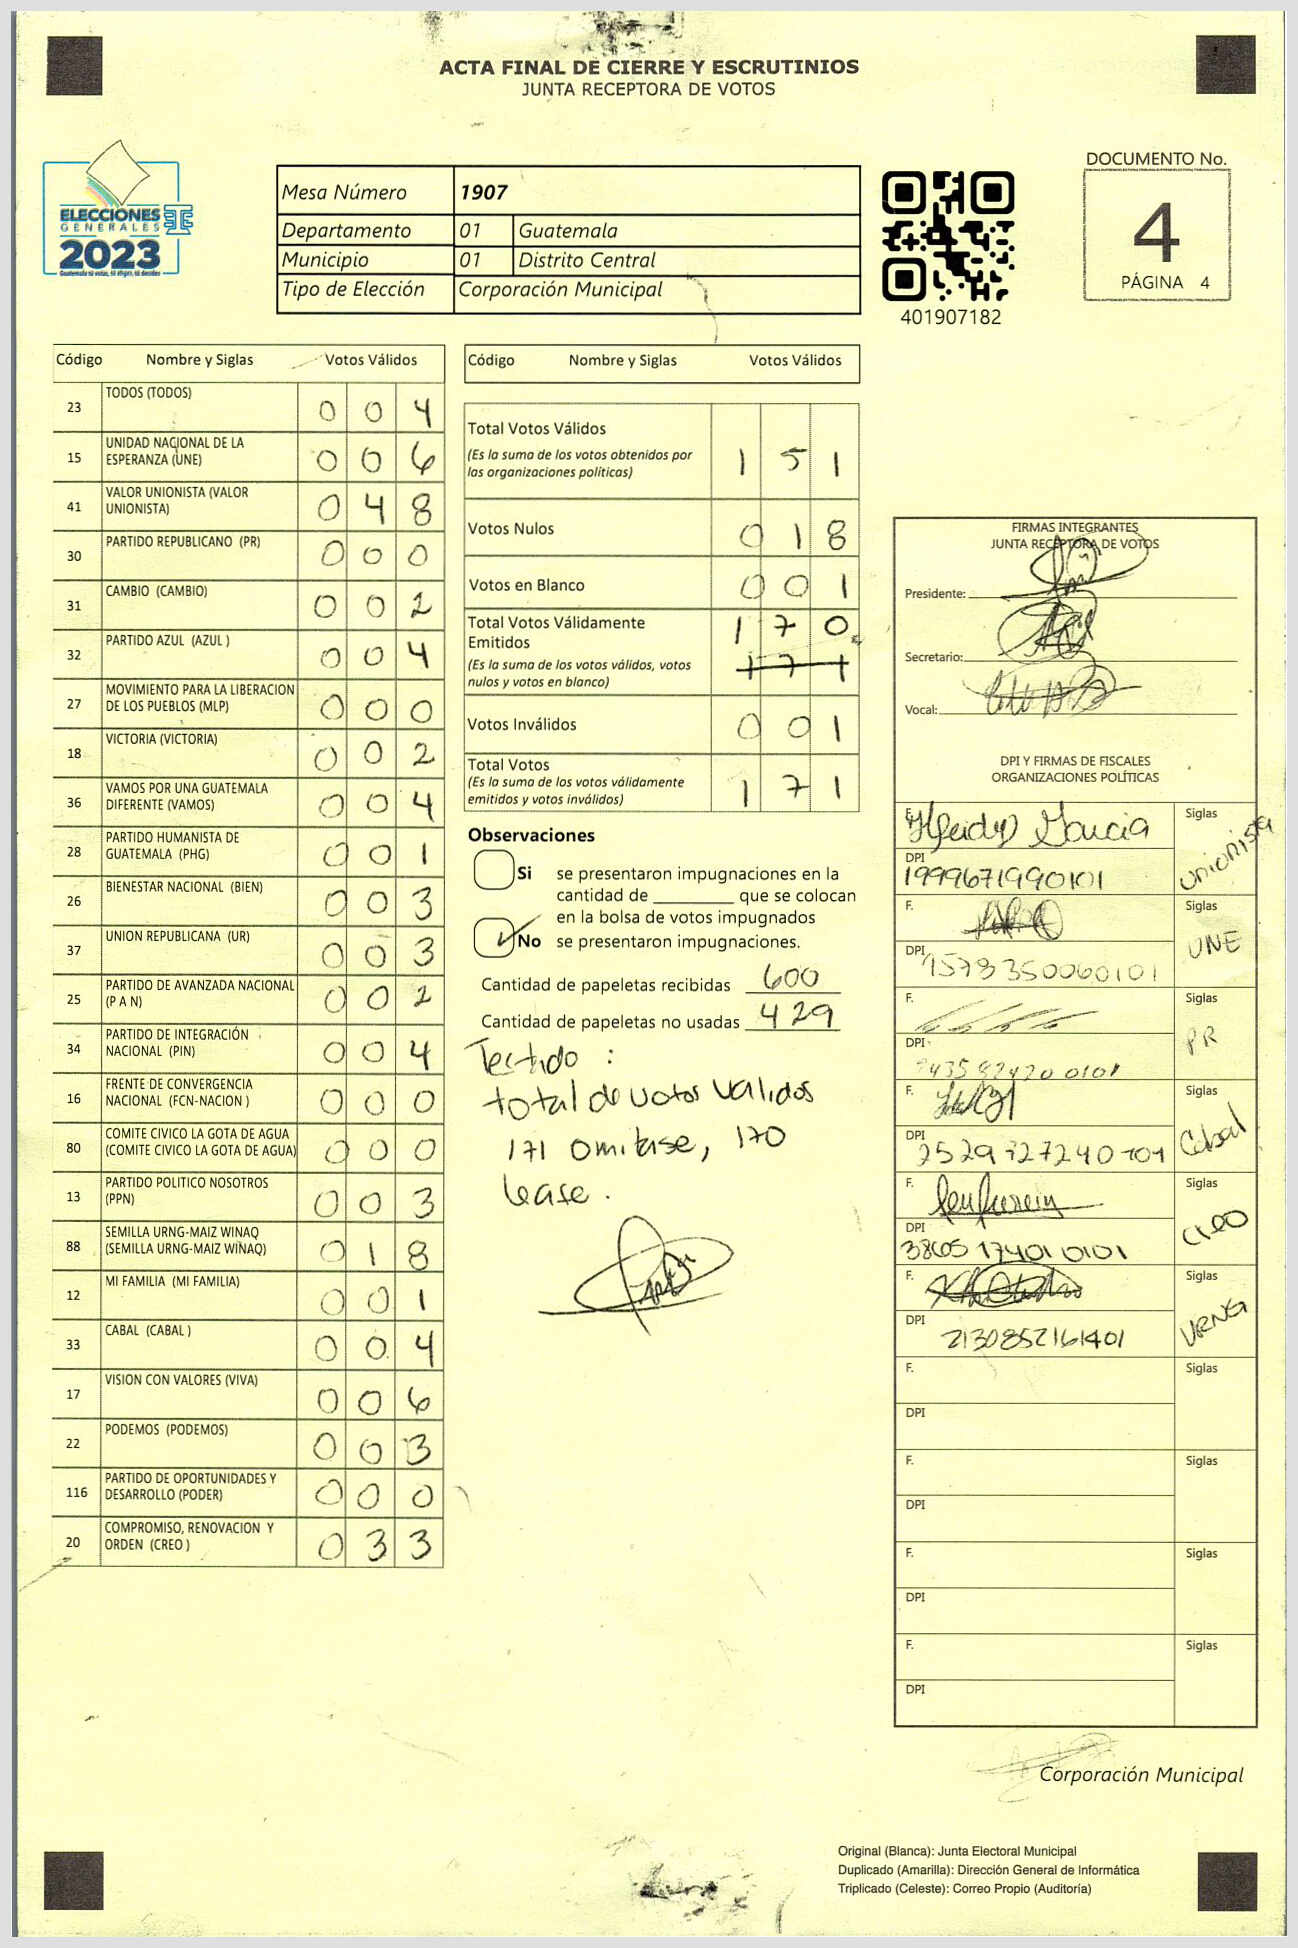 ACTA FINAL DE CIERRE Y ESCRUTINIOS
JUNTA RECEPTORA DE VOTOS
ELECCIONES
GENERALES
2023
Guatemala tú votas, tú eliges, tú decides
Mesa Número 1907
Departamento 01 Guatemala
Municipio 01 Distrito Central
Tipo de Elección Corporación Municipal
401907182
DOCUMENTO No.
4
PÁGINA 4
Código Nombre y Siglas Votos Válidos
23 TODOS (TODOS) 0 0 4
15 UNIDAD NACIONAL DE LA
ESPERANZA (UNE) 0 0 6
41 VALOR UNIONISTA (VALOR
UNIONISTA) 0 4 8
30 PARTIDO REPUBLICANO (PR) 0 0 0
31 CAMBIO (CAMBIO) 0 0 2
32 PARTIDO AZUL (AZUL ) 0 0 4
27 MOVIMIENTO PARA LA LIBERACION
DE LOS PUEBLOS (MLP) 0 0 0
18 VICTORIA (VICTORIA) 0 0 2
36 VAMOS POR UNA GUATEMALA
DIFERENTE (VAMOS) 0 0 4
28 PARTIDO HUMANISTA DE
GUATEMALA (PHG) 0 0 1
26 BIENESTAR NACIONAL (BIEN) 0 0 3
37 UNION REPUBLICANA (UR) 0 0 3
25 PARTIDO DE AVANZADA NACIONAL
(P A N) 0 0 2
34 PARTIDO DE INTEGRACIÓN
NACIONAL (PIN) 0 0 4
16 FRENTE DE CONVERGENCIA
NACIONAL (FCN-NACION ) 0 0 0
80 COMITE CIVICO LA GOTA DE AGUA
(COMITE CIVICO LA GOTA DE AGUA) 0 0 0
13 PARTIDO POLITICO NOSOTROS
(PPN) 0 0 3
88 SEMILLA URNG-MAIZ WINAQ
(SEMILLA URNG-MAIZ WINAQ) 0 1 8
12 MI FAMILIA (MI FAMILIA) 0 0 1
33 CABAL (CABAL ) 0 0 4
17 VISION CON VALORES (VIVA) 0 0 6
22 PODEMOS (PODEMOS) 0 0 3
116 PARTIDO DE OPORTUNIDADES Y
DESARROLLO (PODER) 0 0 0
20 COMPROMISO, RENOVACION Y
ORDEN (CREO ) 0 3 3
Código Nombre y Siglas Votos Válidos
Total Votos Válidos
(Es la suma de los votos obtenidos por
las organizaciones políticas) 1 5 1
Votos Nulos 0 1 8
Votos en Blanco 0 0 1
Total Votos Válidamente
Emitidos 1 7 0
(Es la suma de los votos válidos, votos
nulos y votos en blanco) 1 7 1
Votos Inválidos 0 0 1
Total Votos
(Es la suma de los votos válidamente
emitidos y votos inválidos) 1 7 1
Observaciones
Si se presentaron impugnaciones en la
cantidad de ________ que se colocan
en la bolsa de votos impugnados
No se presentaron impugnaciones.
Cantidad de papeletas recibidas 600
Cantidad de papeletas no usadas 429
Testido :
total de votos validos
171 omitase, 170
lease .
FIRMAS INTEGRANTES
JUNTA RECEPTORA DE VOTOS
Presidente:
Secretario:
Vocal:
DPI Y FIRMAS DE FISCALES
ORGANIZACIONES POLÍTICAS
F. Heidy Garcia Siglas
DPI
1999671990101 unionista
F. Siglas
DPI 1578350060101 UNE
F. Siglas
DPI PR
F. Siglas
DPI Cabal
F. Siglas
DPI CREO
38605 17401 0101
F. Siglas
DPI URNG
2130852161401
F. Siglas
DPI
F. Siglas
DPI
F. Siglas
DPI
F. Siglas
DPI
Corporación Municipal
Original (Blanca): Junta Electoral Municipal
Duplicado (Amarilla): Dirección General de Informática
Triplicado (Celeste): Correo Propio (Auditoría)